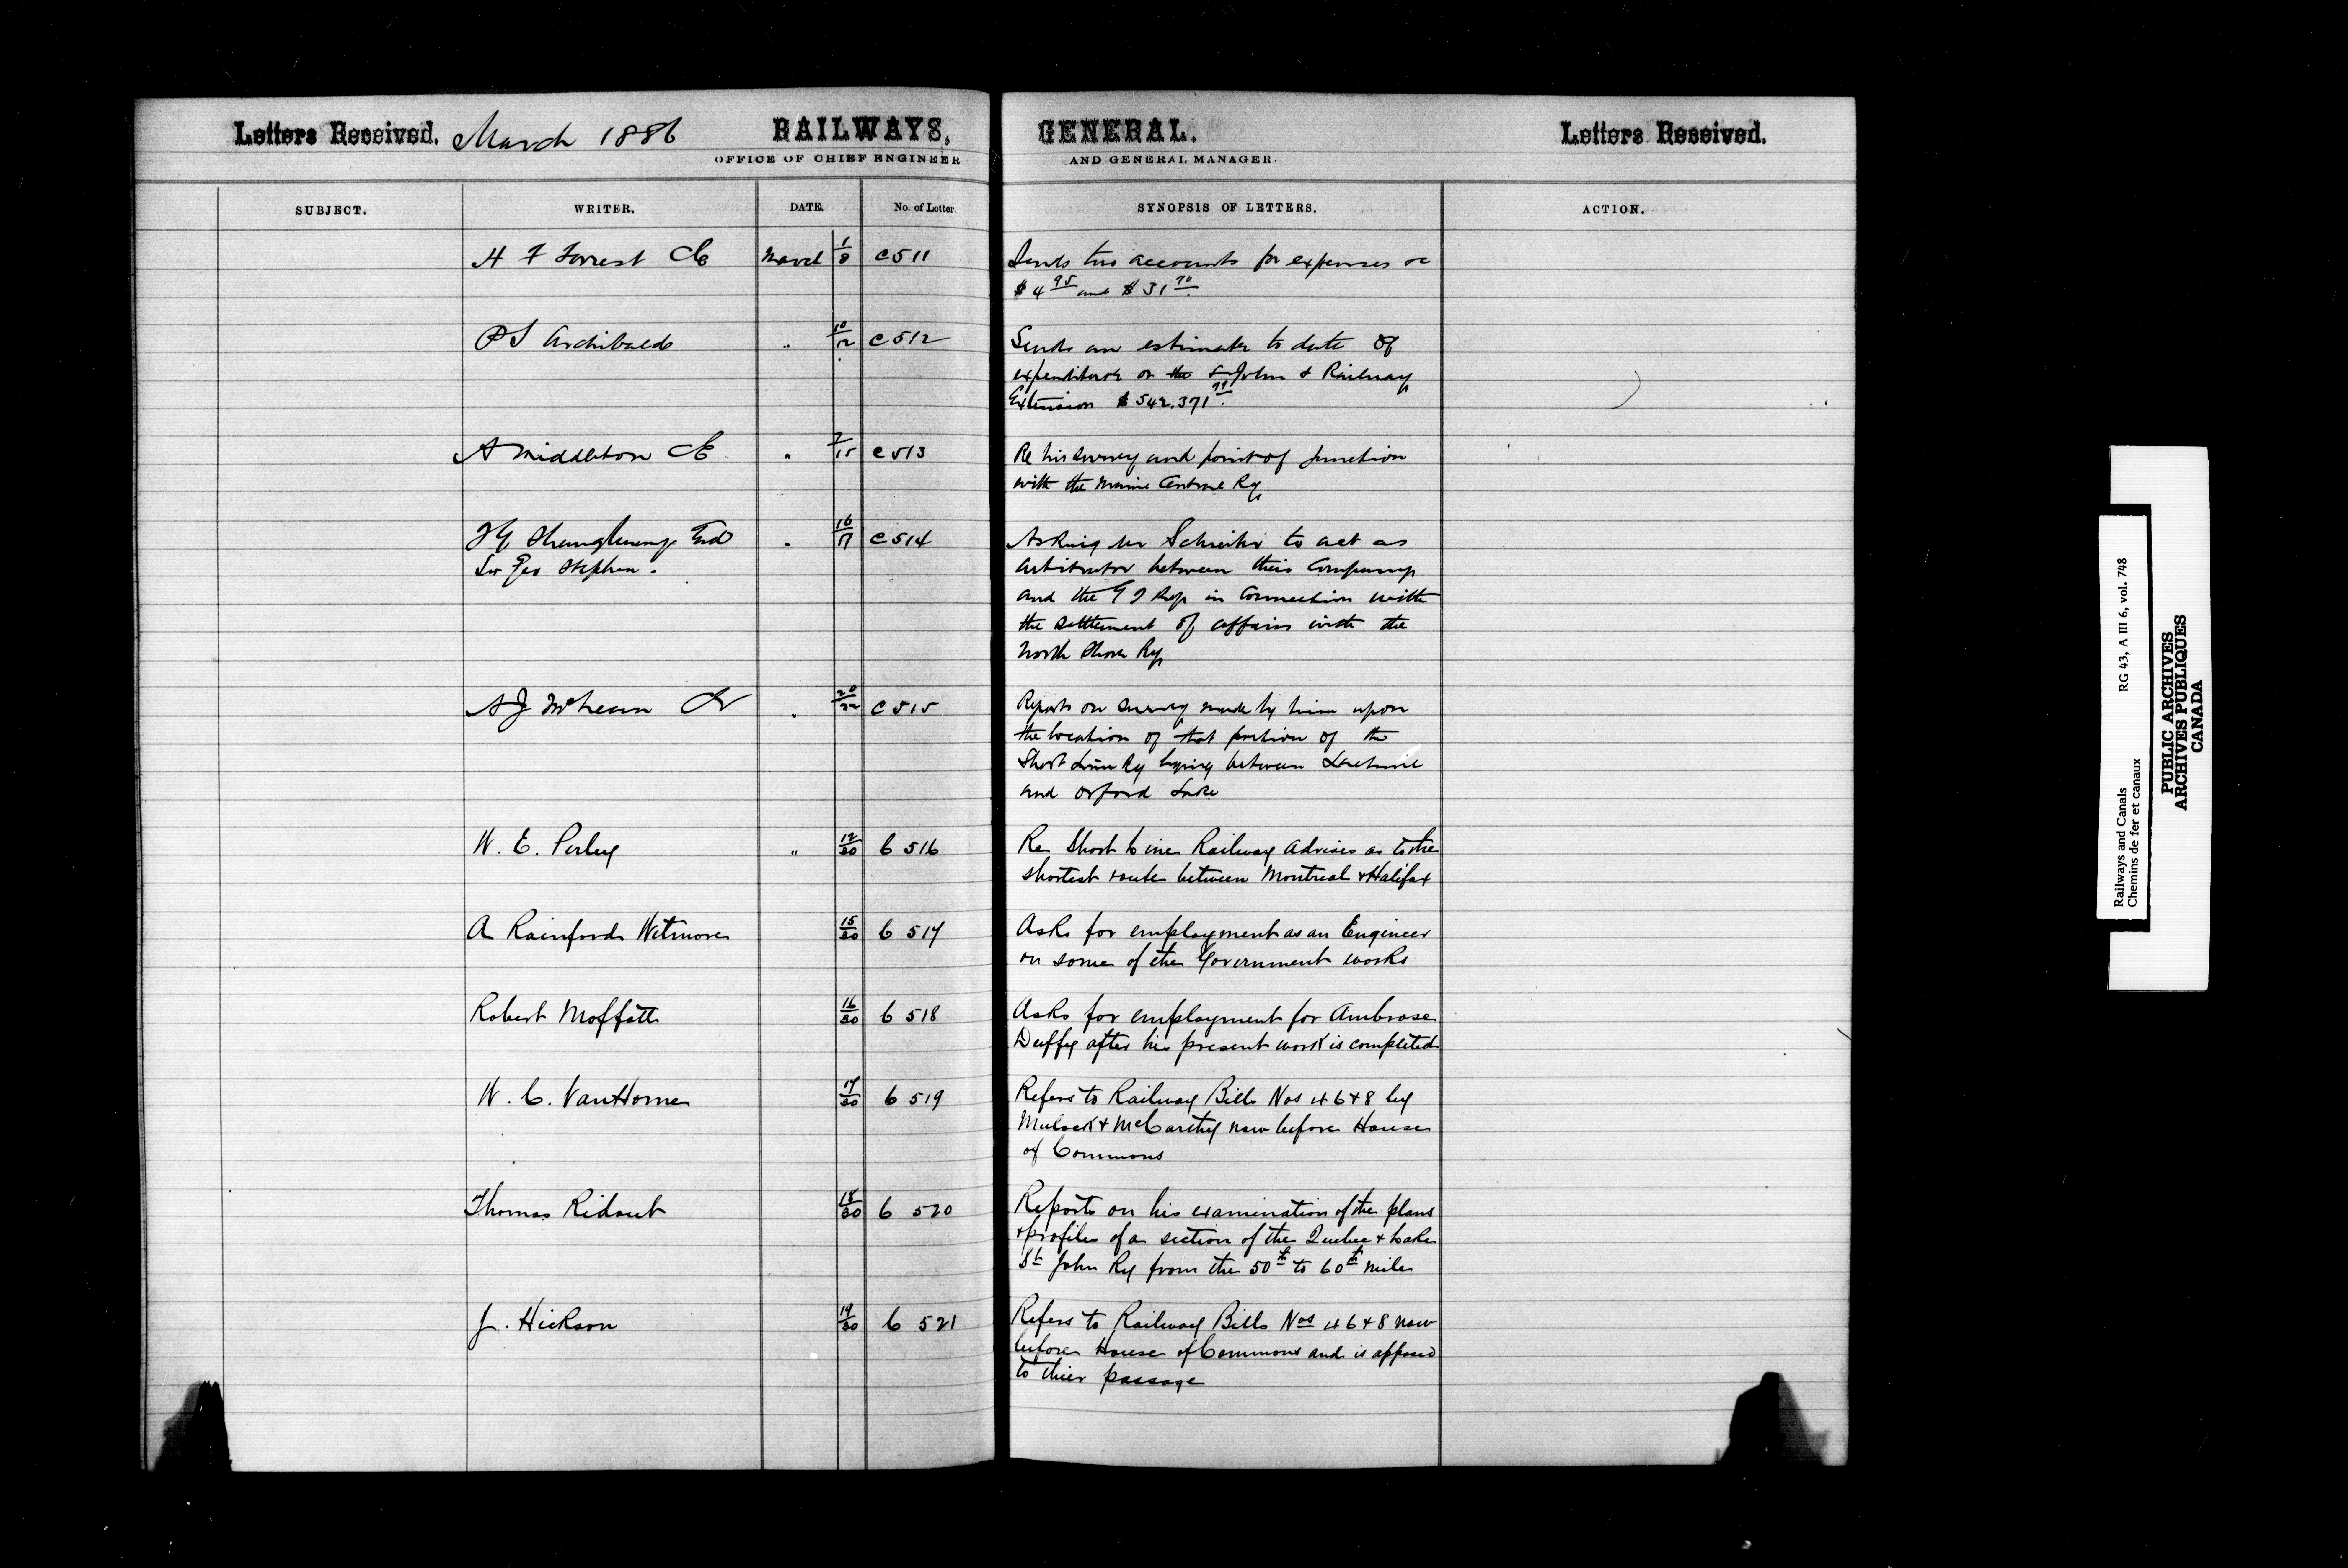 Letters Received. March 1886 RAILWAYS, GENERAL. Letters Received.
OFFICE OF CHIEF ENGINEER AND GENERAL MANAGER.
SUBJECT. WRITER. DATE. No. of Letter. SYNOPSIS OF LETTERS. ACTION.
H F Forrest CE March 1/8 C 511 Sends two accounts for expenses re
$4 95 and $31 70
P S Archibald " 10/12 C 512 Sends an estimate to date of
expenditure on the St John & Railway
Extension $542,371 79.
A Middleton CE " 7/15 C 513 Re his survey and point of junction
with the Maine Central Ry
T G Shaughnessy End " 16/17 C 514 Asking Mr Schreiber to act as
Sir Geo Stephen. arbitrator between their Company
and the G T Ry in connection with
the settlement of affairs with the
North Shore Ry
A J McLean " 20/22 C 515 Reports on survey made by him upon
the location of that portion of the
Short Line Ry lying between Lachine
and Orford Lake
W. E. Perley " 12/30 C 516 Re Short Line Railway advises as to the
shortest route between Montreal & Halifax
A Rainford Wetmore 15/30 C 517 Asks for employment as an Engineer
on some of the Government works
Robert Moffatt 16/30 C 518 Asks for employment for Ambrose
Duffy after his present work is completed
W. C. Van Horne 17/30 C 519 Refers to Railway Bills Nos 4 6 & 8 by
Mulock & McCarthy now before House
of Commons
Thomas Ridout 18/30 C 520 Reports on his examination of the plans
& profiles of a section of the Quebec & Lake
St John Ry from the 50th to 60th mile
J. Hickson 19/30 C 521 Refers to Railway Bills Nos 4 6 & 8 now
before House of Commons and is opposed
to thier passage
Railways and Canals RG 43, A III 6, vol. 748
Chemins de fer et canaux
PUBLIC ARCHIVES
ARCHIVES PUBLIQUES
CANADA